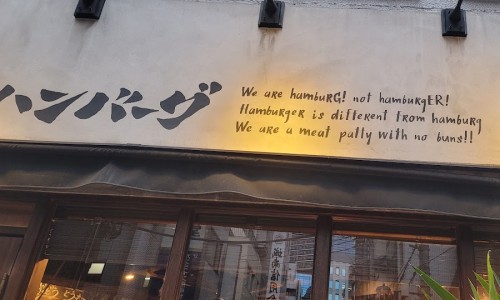 ハンバーグ
We are hambuRG! not hamburgER!
Hamburger is different from hamburg
We are a meat patty with no buns!!